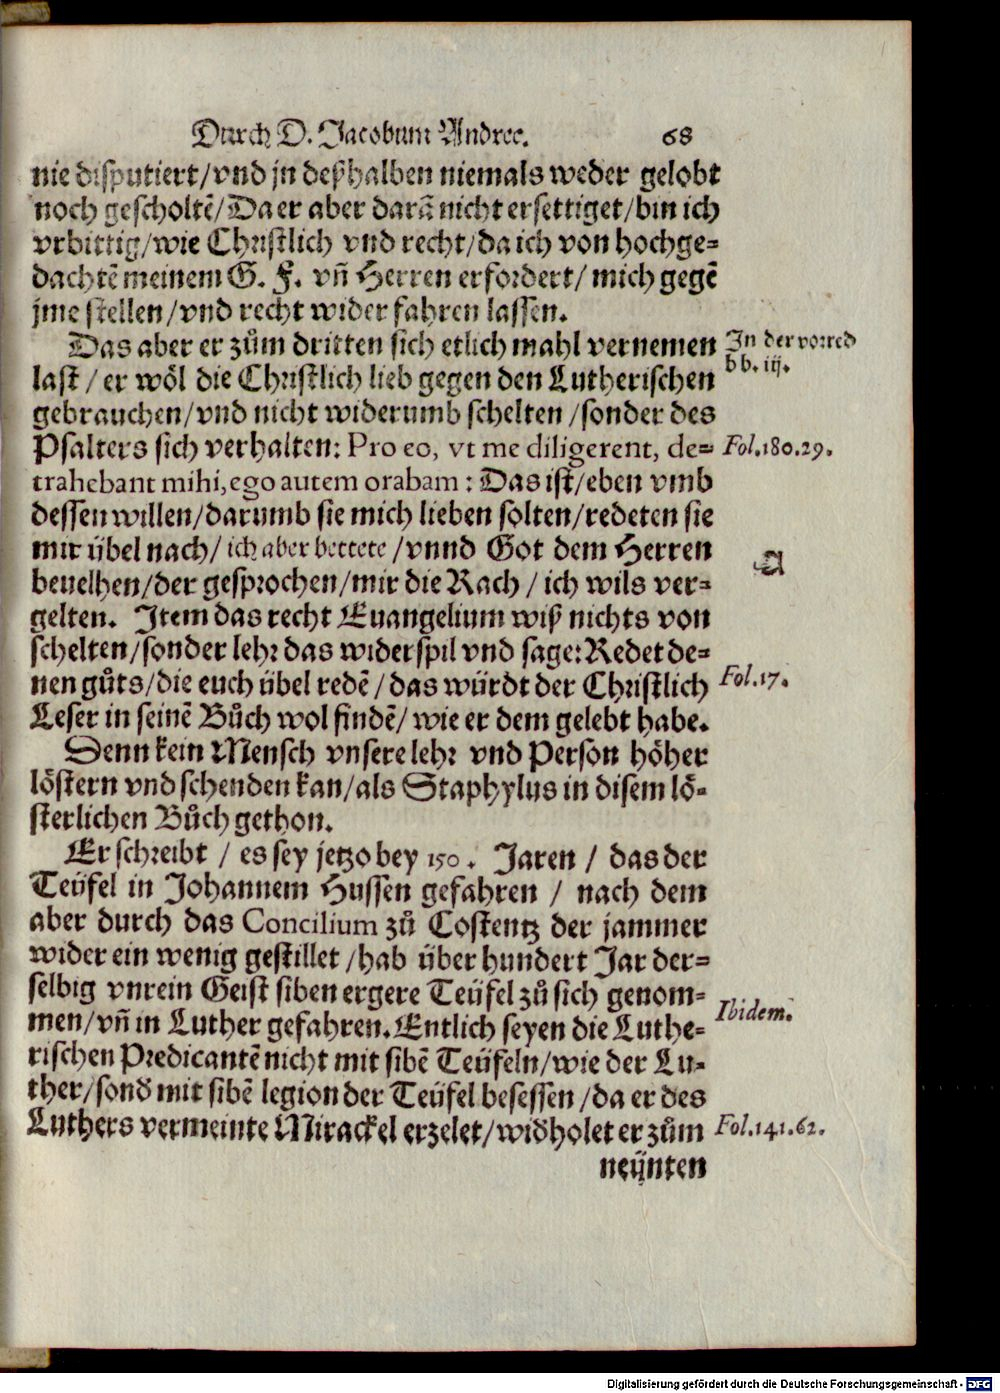 Durch D. Jacobum Andree. 68
nie disputiert/vnd jn deßhalben niemals weder gelobt
noch gescholtẽ/Da er aber darã nicht ersettiget/bin ich
vrbittig/wie Christlich vnd recht/da ich von hochge=
dachtẽ meinem G. F. vñ Herren erfordert/ mich gegẽ
jme stellen/vnd recht wider fahren lassen.
Das aber er zům dritten sich etlich mahl vernemen
last/er wöl die Christlich lieb gegen den Lutherischen
gebrauchen/vnd nicht widerumb schelten/sonder des
Psalters sich verhalten: Pro eo, vt me diligerent, de=
trahebant mihi, ego autem orabam: Das ist/eben vmb
dessen willen/darumb sie mich lieben solten/redeten sie
mir übel nach/ ich aber bettete/vnnd Got dem Herren
beuelhen/der gesprochen/mir die Rach/ich wils ver=
gelten. Item das recht Euangelium wiß nichts von
schelten/sonder lehr das widerspil vnd sage: Redet de=
nen gůts/die euch übel redẽ/das würdt der Christlich
Leser in seinẽ Bůch wol findẽ/wie er dem gelebt habe.
Denn kein Mensch vnsere lehr vnd Person höher
löstern vnd schenden kan/als Staphylus in disem lö=
sterlichen Bůch gethon.
Er schreibt/es sey jetzo bey 150. Jaren/das der
Teüfel in Johannem Hussen gefahren/nach dem
aber durch das Concilium zů Costentz der jammer
wider ein wenig gestillet/hab über hundert Jar der=
selbig vnrein Geist siben ergere Teüfel zů sich genom=
men/vñ in Luther gefahren. Entlich seyen die Luthe=
rischen Predicantẽ nicht mit sibẽ Teüfeln/wie der Lu=
ther/sond' mit sibẽ legion der Teüfel besessen/da er des
Luthers vermeinte Mirackel erzelet/wid'holet er zům
neünten
In der vorred
bb. iij.
Fol.180.29.
Fol.17.
Ibidem.
Fol.141.62.
Digitalisierung gefördert durch die Deutsche Forschungsgemeinschaft - DFG